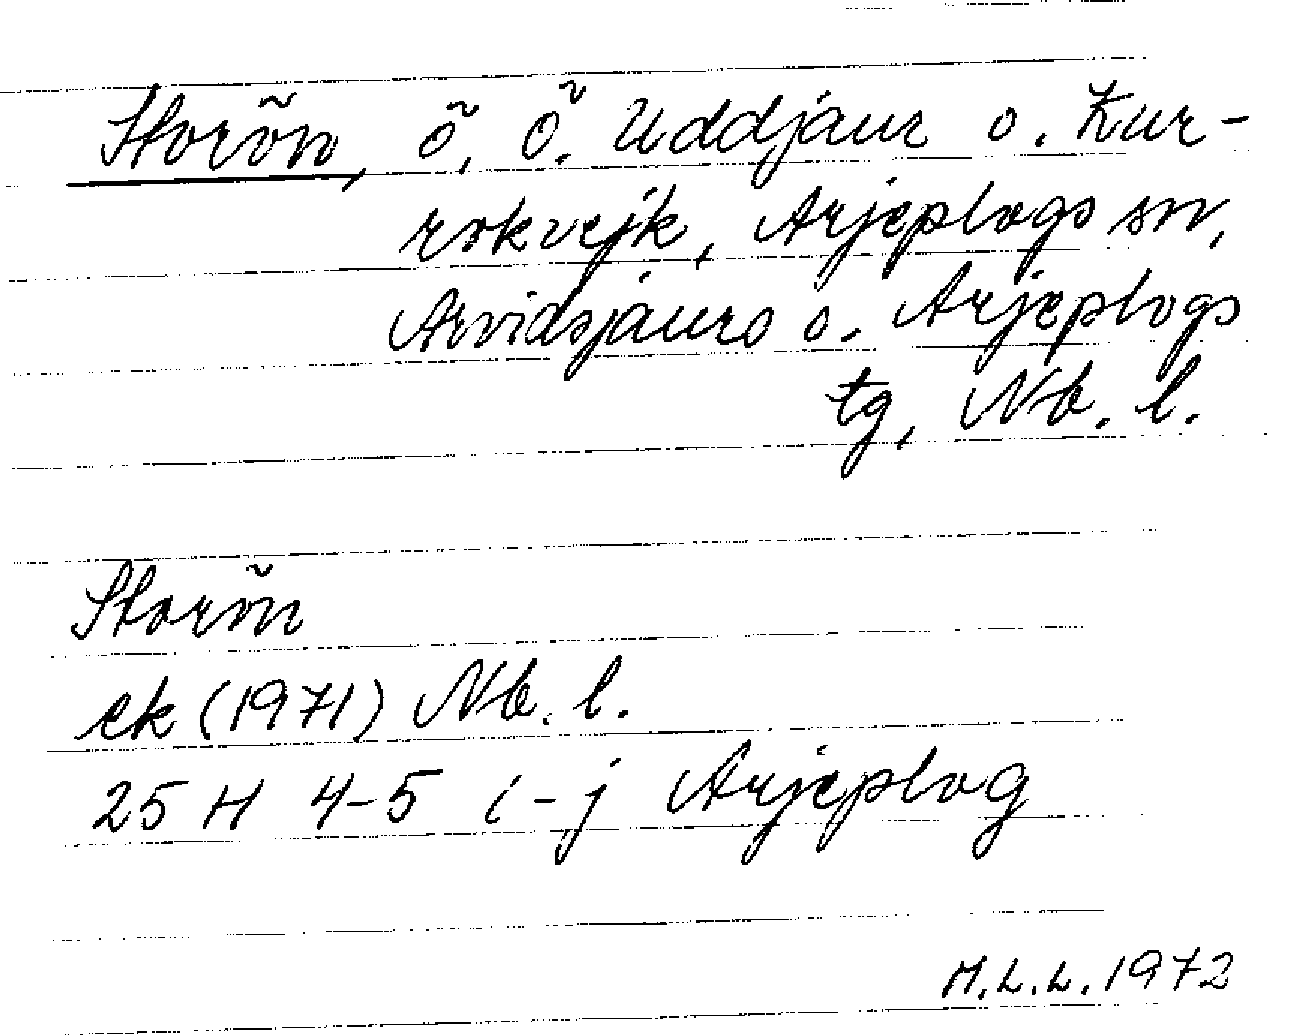 Storön, ö, Ö. Uddjaur o. Kur-
rokvejk, Arjeplogs sn,
Arvidsjaurs o. Arjeplogs
tg, Nb. l.
Storön
ek (1971) Nb. l.
25 H 4-5 i-j Arjeplog
M.L.L. 1972